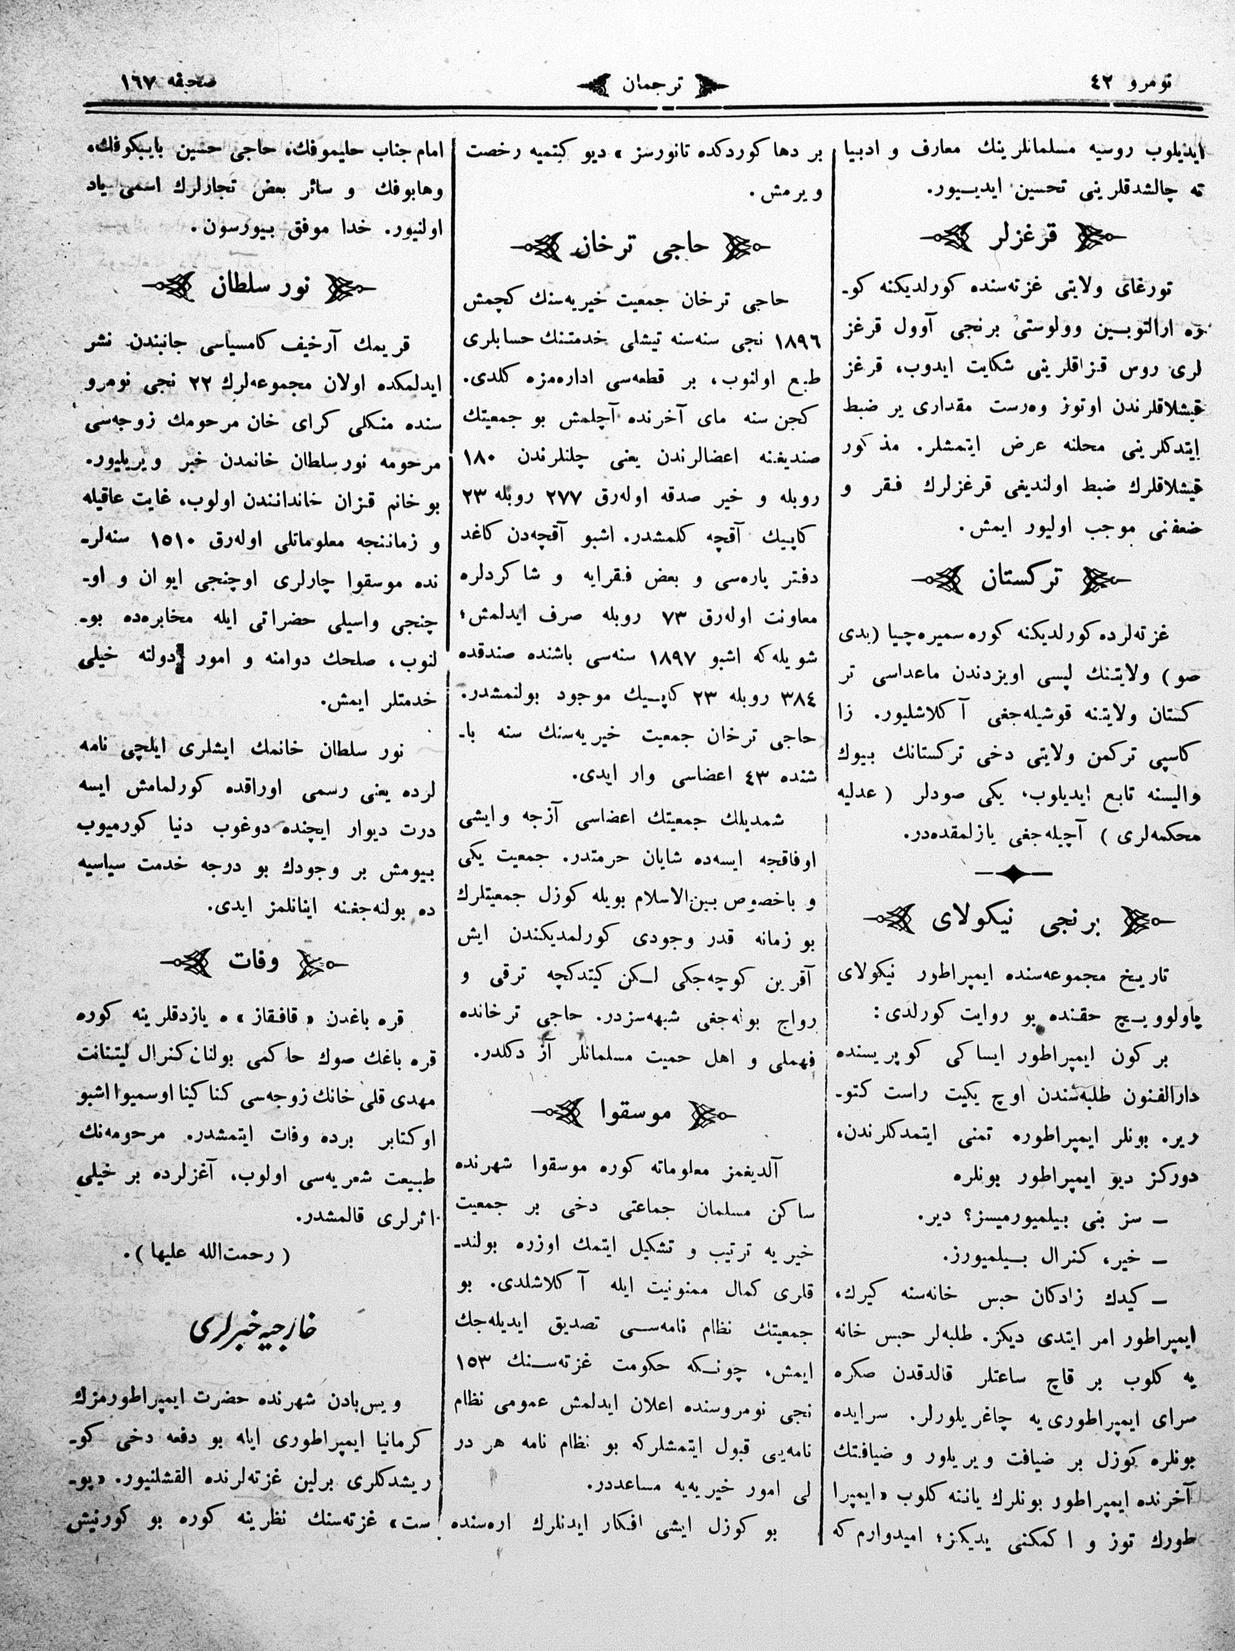 نومرو ٤٢
ترجمان
صحيفه ١٦٧
ايديلوب روسيه مسلمانلرينك معارف و ادبيا
ته چالشدقلرينى تحسين ايديييور.
قرغزلر
تورغاى ولايتى غزته‌سنده كورلديكنه كو-
ره ارالتوبين وولوستى برنجى آوول قرغز
لرى روس قزاقلرينى شكايت ايدوب، قرغز
قيشلاقلرندن اوتوز وه‌رست مقدارى ير ضبط
ايتدكلرينى محلنه عرض ايتمشلر. مذكور
قيشلاقلرك ضبط اولنديغى قرغزلرك فقر و
ضعفنى موجب اوليور ايمش.
تركستان
غزته‌لرده كورلديكنه كوره سميره‌چيا (يدى
صو) ولايتنك لپسى اويزدندن ماعداسى تر
كستان ولايتنه قوشيله‌جغى آكلاشليور. زا
كاسپى تركمن ولايتى دخى تركستانك بيوك
واليسنه تابع ايديلوب، يكى صودلر (عدليه
محكمه‌لرى) آچيله‌جغى يازلمقده‌در.
برنجى نيكولاى
تاريخ مجموعه‌سنده ايمپراطور نيكولاى
پاولوويچ حقنده بو روايت كورلدى:
بر كون ايمپراطور ايساكى كوپريسنده
دارالفنون طلبه‌سندن اوچ يكيت راست كتو-
رير. بونلر ايمپراطوره تمنى ايتمدكلرندن،
دوركز ديو ايمپراطور بونلره
— سز بنى بيلميورميسز؟ دير.
— خير، كنرال بيلميورز.
— كيدك زادكان حبس خانه‌سنه كيرك،
ايمپراطور امر ايتدى ديكز. طلبه‌لر حبس خانه
يه كلوب بر قاچ ساعتلر قالدقدن صكره
سراى ايمپراطورى‌يه چاغريلورلر. سرايده
بونلره كوزل بر ضيافت ويريلور و ضيافتك
آخرنده ايمپراطور بونلرك ياننه كلوب «ايمپرا
طورك توز و اكمكنى يديكز؛ اميدوارم كه
بر دها كوردكده تانورسز» ديو كيتميه رخصت
ويرمش.
حاجى ترخان
حاجى ترخان جمعيت خيريه‌سنك كچمش
١٨٩٦ نجى سنه‌سنه تيشلى خدمتنك حسابلرى
طبع اولنوب، بر قطعه‌سى اداره‌مزه كلدى.
كچن سنه ماى آخرنده آچلمش بو جمعيتك
صنديغنه اعضالرندن يعنى چلنلرندن ١٨٠
روبله و خير صدقه اوله‌رق ٢٧٧ روبله ٢٣
كاپيك آقچه كلمشدر. اشبو آقچه‌دن كاغد
دفتر پاره‌سى و بعض فقرايه و شاكردلره
معاونت اوله‌رق ٧٣ روبله صرف ايدلمش؛
شويله‌كه اشبو ١٨٩٧ سنه‌سى باشنده صندقده
٣٨٤ روبله ٢٣ كاپيك موجود بولنمشدر.
حاجى ترخان جمعيت خيريه‌سنك سنه با-
شنده ٤٣ اعضاسى وار ايدى.
شمديلك جمعيتك اعضاسى آزجه و ايشى
اوفاقجه ايسه‌ده شايان حرمتدر. جمعيت يكى
و باخصوص بين‌الاسلام بويله كوزل جمعيتلرك
بو زمانه قدر وجودى كورلمديكندن ايش
آقرين كوچه‌جكى لكن كيتدكچه ترقى و
رواج بوله‌جغى شبهه‌سزدر. حاجى ترخانده
فهملى و اهل حميت مسلمانلر آز دكلدر.
موسقوا
آلديغمز معلوماته كوره موسقوا شهرنده
ساكن مسلمان جماعتى دخى بر جمعيت
خيريه ترتيب و تشكيل ايتمك اوزره بولند-
قلرى كمال ممنونيت ايله آكلاشلدى. بو
جمعيتك نظام نامه‌سى تصديق ايديله‌جك
ايمش، چونكه حكومت غزته‌سنك ١٥٣
نجى نومروسنده اعلان ايدلمش عمومى نظام
نامه‌يى قبول ايتمشلركه بو نظام نامه هر در
لى امور خيريه‌يه مساعددر.
بو كوزل ايشى افكار ايدنلرك اره‌سنده
امام جناب حليموفك، حاجى حسين بايبكوفك،
وهابوفك و سائر بعض تجارلرك اسمى ياد
اولنيور. خدا موفق بيورسون.
نور سلطان
قريمك آرخيف كاميسياسى جانبندن نشر
ايدلمكده اولان مجموعه‌لرك ٢٢ نجى نومرو
سنده منكلى كراى خان مرحومك زوجه‌سى
مرحومه نورسلطان خانمدن خبر ويريليور.
بو خانم قزان خاندانندن اولوب، غايت عاقيله
و زماننجه معلوماتلى اوله‌رق ١٥١٠ سنه‌لر-
نده موسقوا چارلرى اوچنجى ايوان و او-
چنجى واسيلى حضراتى ايله مخابره‌ده بو-
لنوب، صلحك دوامنه و امور دولته خيلى
خدمتلر ايمش.
نور سلطان خانمك ايشلرى ايلچى نامه
لرده يعنى رسمى اوراقده كورلمامش ايسه
درت ديوار ايچنده دوغوب دنيا كورميوب
بيومش بر وجودك بو درجه خدمت سياسيه
ده بولنه‌جغنه اينانلمز ايدى.
وفات
قره باغدن «قافقاز» ه يازدقلرينه كوره
قره باغك صوك حاكمى بولنان كنرال ليتنانت
مهدى قلى خانك زوجه‌سى كناكينا اوسميوا اشبو
اوكتابر برده وفات ايتمشدر. مرحومه‌نك
طبيعت شعريه‌سى اولوب، آغزلرده بر خيلى
اثرلرى قالمشدر.
(رحمت‌الله عليها).
خارجيه خبرلرى
ويس‌بادن شهرنده حضرت ايمپراطورمزك
كرمانيا ايمپراطورى ايله بو دفعه دخى كو-
ريشدكلرى برلين غزته‌لرنده القشلنيور. «پو-
ست» غزته‌سنك نظرينه كوره بو كورنيش